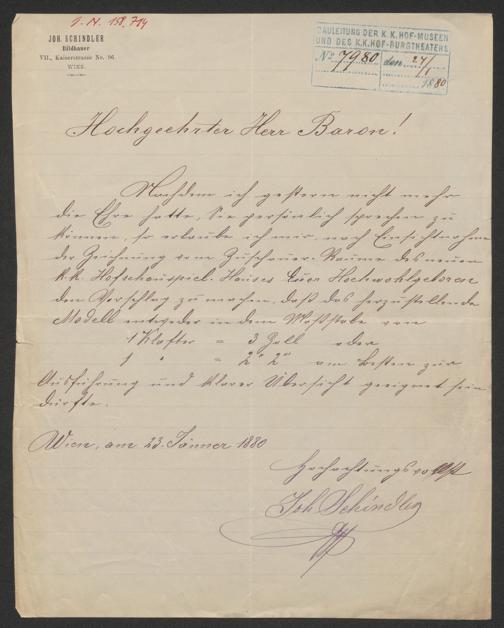 J. N. 158.794
JOH. SCHINDLER
Bildhauer
VII., Kaiserstrasse Nr. 96
WIEN.
BAULEITUNG DER K.K. HOF-MUSEEN
UND DES K.K. HOF-BURGTHEATERS
No 7980 den 24/1
1880
Hochgeehrter Herr Baron!
Nachdem ich gestern nicht mehr
die Ehre hatte, Sie persönlich sprechen zu
können, so erlaube ich mir, nach Einsichtnahme
der Zeichnung vom Zuschauer-Raume des neuen
k.k. Hofschauspiel-Hauses Euer Hochwohlgeboren
den Vorschlag zu machen, daß das herzustellende
Modell entweder in dem Maßstabe von
1 Klafter = 3 Zoll oder
1 " = 2" 2''' am besten zur
Ausführung und klarer Übersicht geeignet sein
dürfte.
Wien, am 23. Jänner 1880
Hochachtungsvollst
Joh Schindler